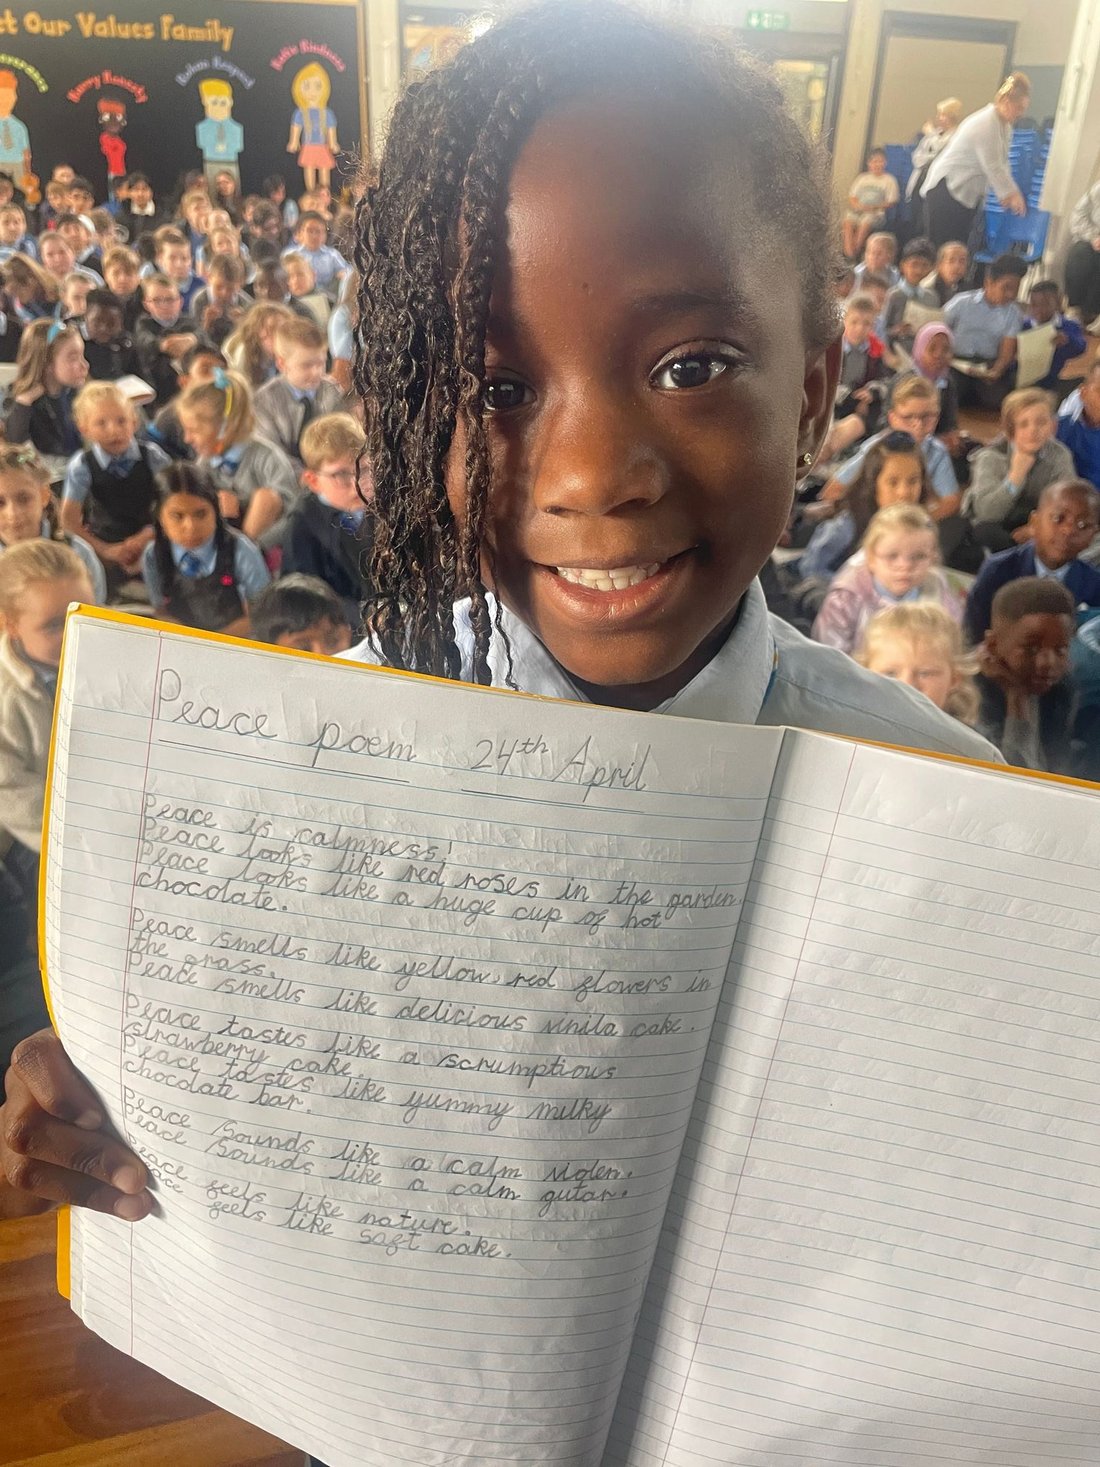 et Our Values Family
Harry Honesty
Robin Respect
Katie Kindness
Peace poem 24th April
Peace is calmness!
Peace looks like red roses in the garden.
Peace looks like a huge cup of hot
chocolate.
Peace smells like yellow, red flowers in
the grass.
Peace smells like delicious vinila cake.
Peace tastes like a scrumptious
strawberry cake.
Peace tastes like yummy milky
chocolate bar.
Peace sounds like a calm violen.
Peace sounds like a calm gutar.
Peace feels like nature.
Peace feels like saft cake.